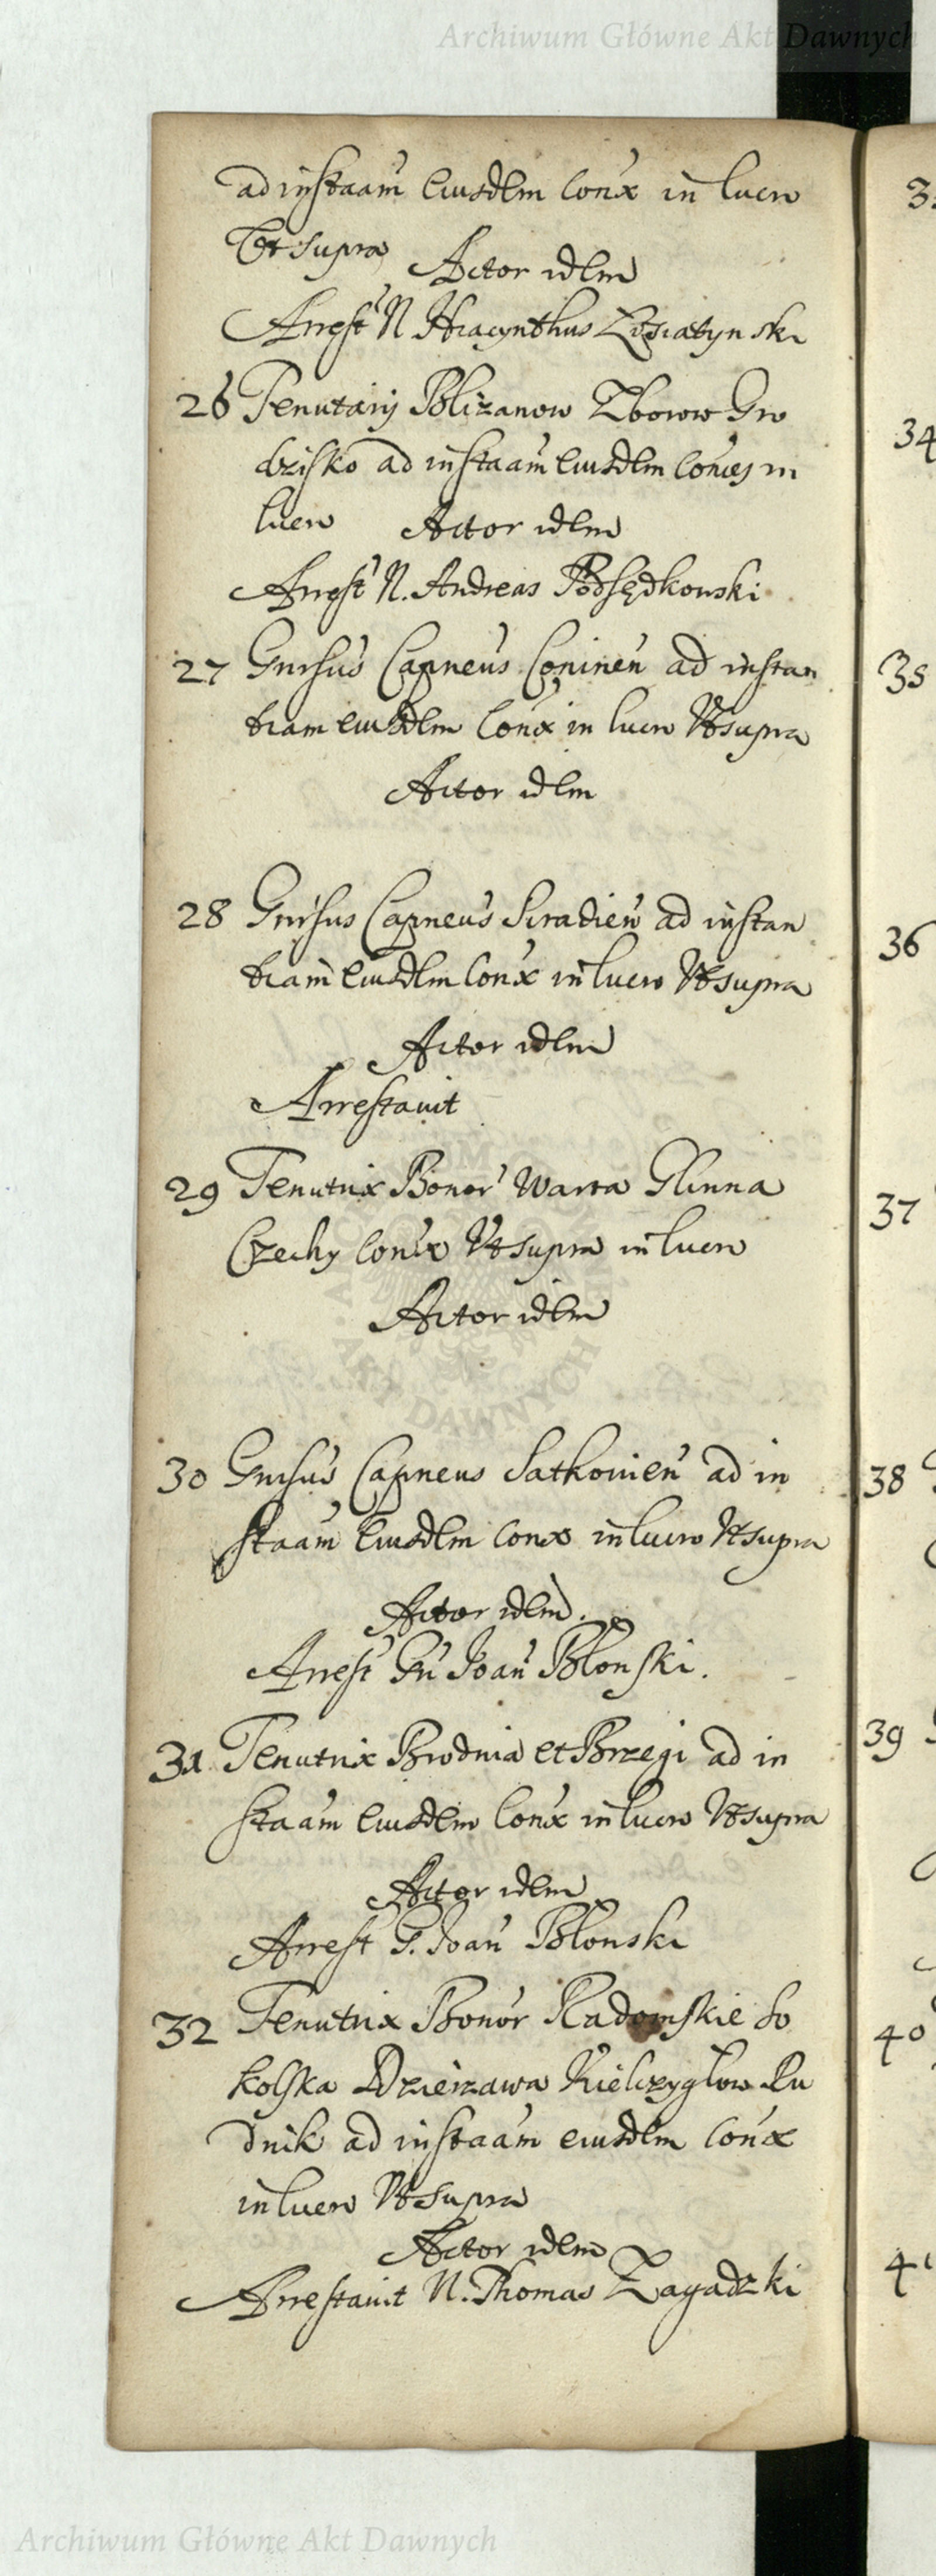 Archiwum Główne Akt Dawnych
ad instaam Eiusdem Conx in lucro
Vt supra Actor idem
Arrest N Hiacynthus
26 Tenutarij Blizanow Zborow Gro
dzisko ad instaam Eiusdem in
lucro Actor idem
Arrest N. Andreas Podsędkowski
27 Gnrsus Capneus Coninen ad instan
tiam eiusdem Conx in lucro Vt supra
Actor idem
28 Gnrsus Capneus Siradien ad instan
tiam Eiusdem Conx in lucro Vt supra
Actor idem
Arrestauit
29 Tenutrix Bonor Warta Glinna
Czechy Conx Vt supra in lucro
Actor idem
30 Gnrsus Capneus ad in
staam Eiusdem Conx in lucro Vt supra
Actor idem.
Arrest Gn Joan Błonski.
31 Tenutrix Brodnia et Brzegi ad in
staam Eiusdem Conx in lucro Vt supra
Actor idem
Arrest G. Joan Błonski
32 Tenutrix Bonor Radomskie So
kolska Dzierzawa Kielczyglow Ru
dnik ad instaam eiusdem Conx
in lucro Vt supra
Actor idem
Arrestauit N. Thomas Zagadzki
34
35
36
37
38
39
40
Archiwum Główne Akt Dawnych